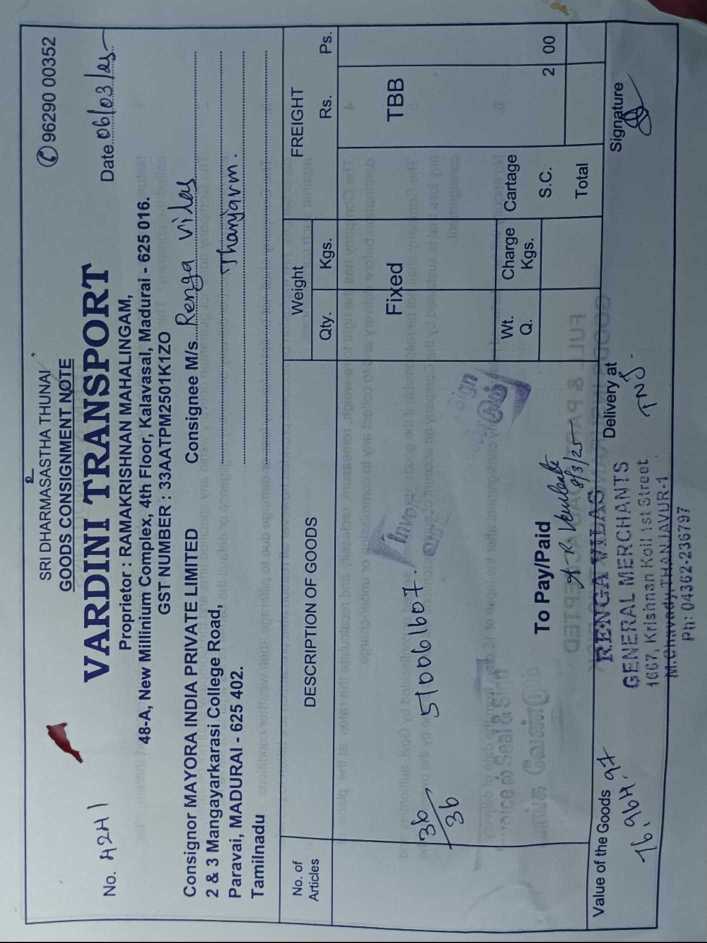 SRI DHARMASASTHA THUNAI
GOODS CONSIGNMENT NOTE
✆ 96290 00352
VARDINI TRANSPORT
No. 4241
Date 06/03/25
Proprietor : RAMAKRISHNAN MAHALINGAM,
48-A, New Millinium Complex, 4th Floor, Kalavasal, Madurai - 625 016.
GST NUMBER : 33AATPM2501K1ZO
Consignor MAYORA INDIA PRIVATE LIMITED
2 & 3 Mangayarkarasi College Road,
Paravai, MADURAI - 625 402.
Tamilnadu
Consignee M/s. Renga Vilas
Thanjavur.
No. of Articles
DESCRIPTION OF GOODS
Weight
Qty. Kgs.
FREIGHT
Rs. Ps.
36/36
510061607.
Fixed
TBB
Wt. Q.
Charge Kgs.
Cartage
S.C. 2 00
Total
To Pay/Paid
8/3/25
Value of the Goods
RENGA VILAS
GENERAL MERCHANTS
1667, Krishnan Koil 1st Street
M.Chavady, THANJAVUR-1
Ph: 04362-236797
Delivery at
TNJ.
Signature